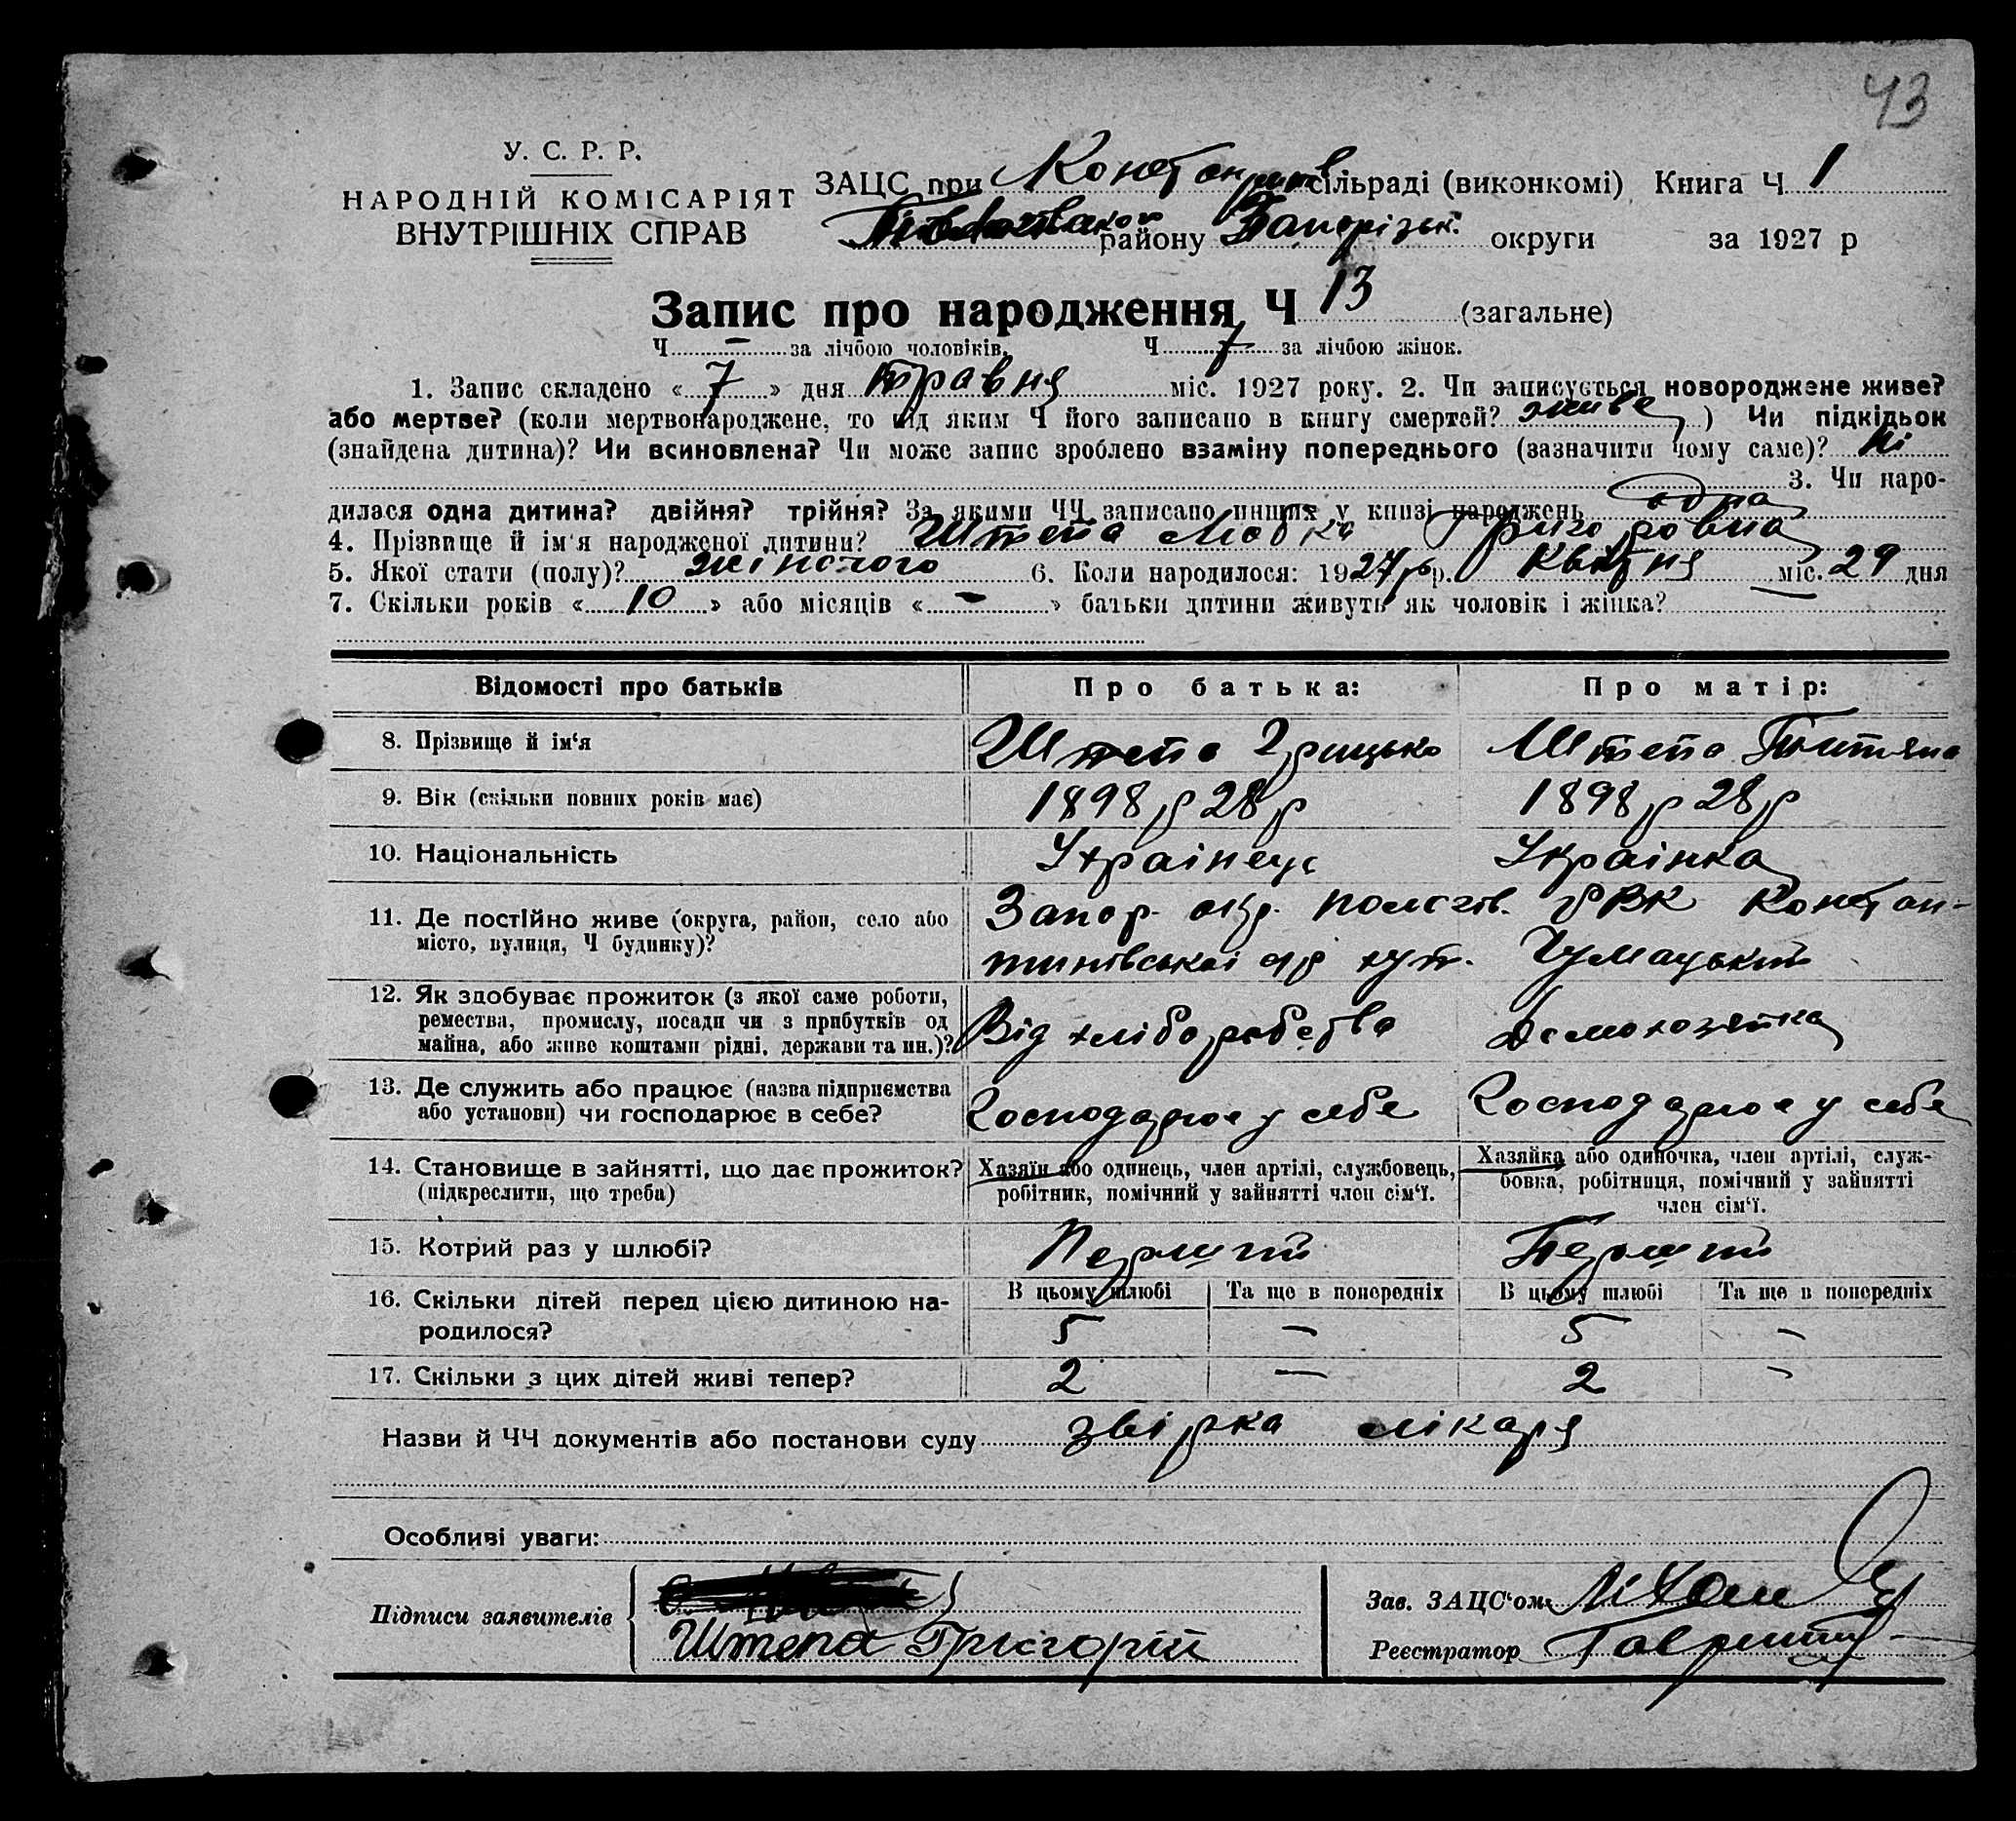 43
У. С. Р. Р.
НАРОДНІЙ КОМІСАРІЯТ
ВНУТРІШНІХ СПРАВ
ЗАЦС при Констентинів сільраді (виконкомі) Книга Ч 1
району Запорізьк. округи за 1927 р
Запис про народження Ч 13 (загальне)
Ч - за лічбою чоловіків. Ч 7 за лічбою жінок.
1. Запис складено « 7 » дня травня міс. 1927 року. 2. Чи записується новороджене живе?
або мертве? (коли мертвонароджене, то під яким Ч його записано в книгу смертей? живе ) Чи підкідьок
(знайдена дитина)? Чи всиновлена? Чи може запис зроблено взаміну попереднього (зазначити чому саме)? Ні
3. Чи наро-
дилася одна дитина? двійня? трійня? За якими ЧЧ записано инших у книзі народжень одна
4. Прізвище й ім'я народженої дитини? Штепа Любка Григоровна
5. Якої стати (полу)? жіночого 6. Коли народилося: 1927 р. Квітня міс. 29 дня
7. Скільки років « 10 » або місяців « - » батьки дитини живуть як чоловік і жінка?
Відомості про батьків Про батька: Про матір:
8. Прізвище й ім'я Штепа Грицько Штепа Титяна
9. Вік (скільки повних років має) 1898 р 28 р 1898 р 28 р
10. Національність Українець Українка
11. Де постійно живе (округа, район, село або Запор. окр. Пологів. РВК Констан-
місто, вулиця, Ч будинку)? тинівської с/р хут. Чумацький
12. Як здобуває прожиток (з якої саме роботи,
ремества, промислу, посади чи з прибутків од Від хліборобства Домохозяйка
майна, або живе коштами рідні, держави та ин.)?
13. Де служить або працює (назва підприємства Господарює у себе Господарює у себе
або установи) чи господарює в себе?
14. Становище в зайнятті, що дає прожиток? Хазяїн або одинець, член артілі, службовець, Хазяйка або одиночка, член артілі, служ-
(підкреслити, що треба) робітник, помічний у зайнятті член сім'ї. бовка, робітниця, помічний у зайнятті
член сім'ї.
15. Котрий раз у шлюбі? Перший Перший
16. Скільки дітей перед цією дитиною на- В цьому шлюбі Та ще в попередніх В цьому шлюбі Та ще в попередніх
родилося? 5 — 5 —
17. Скільки з цих дітей живі тепер? 2 — 2 -
Назви й ЧЧ документів або постанови суду звірка лікаря
Особливі уваги:
Підписи заявителів
Штепа Григорій
Зав. ЗАЦС'ом
Реєстратор